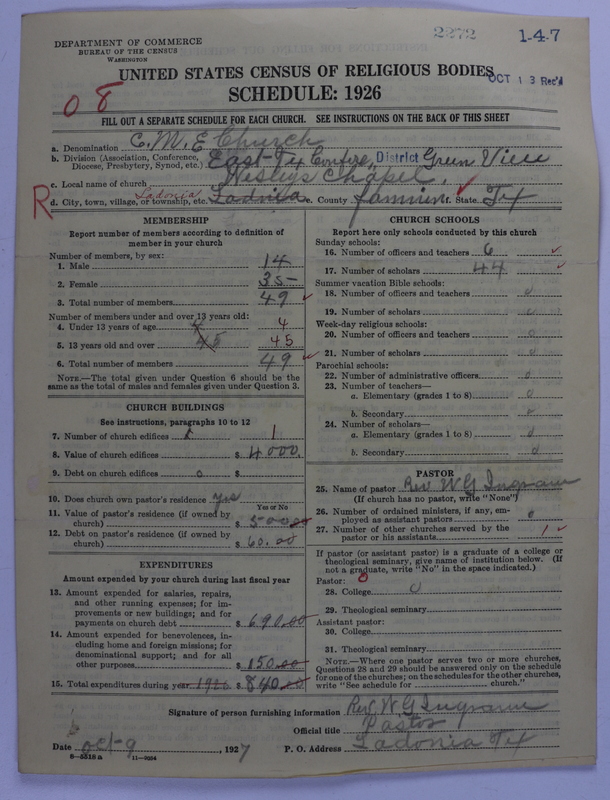 2272
1-4-7
DEPARTMENT OF COMMERCE
BUREAU OF THE CENSUS
WASHINGTON
UNITED STATES CENSUS OF RELIGIOUS BODIES
OCT 13 Rec'd
SCHEDULE: 1926
08
FILL OUT A SEPARATE SCHEDULE FOR EACH CHURCH. SEE INSTRUCTIONS ON THE BACK OF THIS SHEET
a. Denomination C. M. E Church
b. Division (Association, Conference, Diocese, Presbytery, Synod, etc.) East-Tx Confere, District Green View
c. Local name of church Wesleys Chapel,
R
Ladonia
d. City, town, village, or township, etc. Ladonia e. County fannin f. State Tx
MEMBERSHIP
Report number of members according to definition of
member in your church
Number of members, by sex:
1. Male 14
2. Female 35-
3. Total number of members 49
Number of members under and over 13 years old:
4. Under 13 years of age 4
5. 13 years old and over 45 45
6. Total number of members 49
NOTE.—The total given under Question 6 should be the
same as the total of males and females given under Question 3.
CHURCH BUILDINGS
See instructions, paragraphs 10 to 12
7. Number of church edifices 1 1
8. Value of church edifices $ 4000.
9. Debt on church edifices 0 $
10. Does church own pastor's residence yes
Yes or No
11. Value of pastor's residence (if owned by
church) $ 500.00
12. Debt on pastor's residence (if owned by
church) $ 60.00
EXPENDITURES
Amount expended by your church during last fiscal year
13. Amount expended for salaries, repairs,
and other running expenses; for im-
provements or new buildings; and for
payments on church debt $ 690.00
14. Amount expended for benevolences, in-
cluding home and foreign missions; for
denominational support; and for all
other purposes $ 150.00
15. Total expenditures during year 1926 $ 840.00
CHURCH SCHOOLS
Report here only schools conducted by this church
Sunday schools:
16. Number of officers and teachers 6
17. Number of scholars 44
Summer vacation Bible schools:
18. Number of officers and teachers 0
19. Number of scholars 0
Week-day religious schools:
20. Number of officers and teachers 0
21. Number of scholars 0
Parochial schools:
22. Number of administrative officers 0
23. Number of teachers—
a. Elementary (grades 1 to 8) 0
b. Secondary 0
24. Number of scholars—
a. Elementary (grades 1 to 8) 0
b. Secondary 0
PASTOR
25. Name of pastor Rev W G Ingram
(If church has no pastor, write "None")
26. Number of ordained ministers, if any, em-
ployed as assistant pastors 0
27. Number of other churches served by the
pastor or his assistants 1
If pastor (or assistant pastor) is a graduate of a college or
theological seminary, give name of institution below. (If
not a graduate, write "No" in the space indicated.)
Pastor:
28. College 0
29. Theological seminary
Assistant pastor:
30. College
31. Theological seminary
NOTE.—Where one pastor serves two or more churches,
Questions 28 and 29 should be answered only on the schedule
for one of the churches; on the schedules for the other churches,
write "See schedule for church."
Signature of person furnishing information Rev. W G Ingram
Official title Pastor
Date oct-9, 1927 P. O. Address Ladonia Tx
8—5518a 11—9264